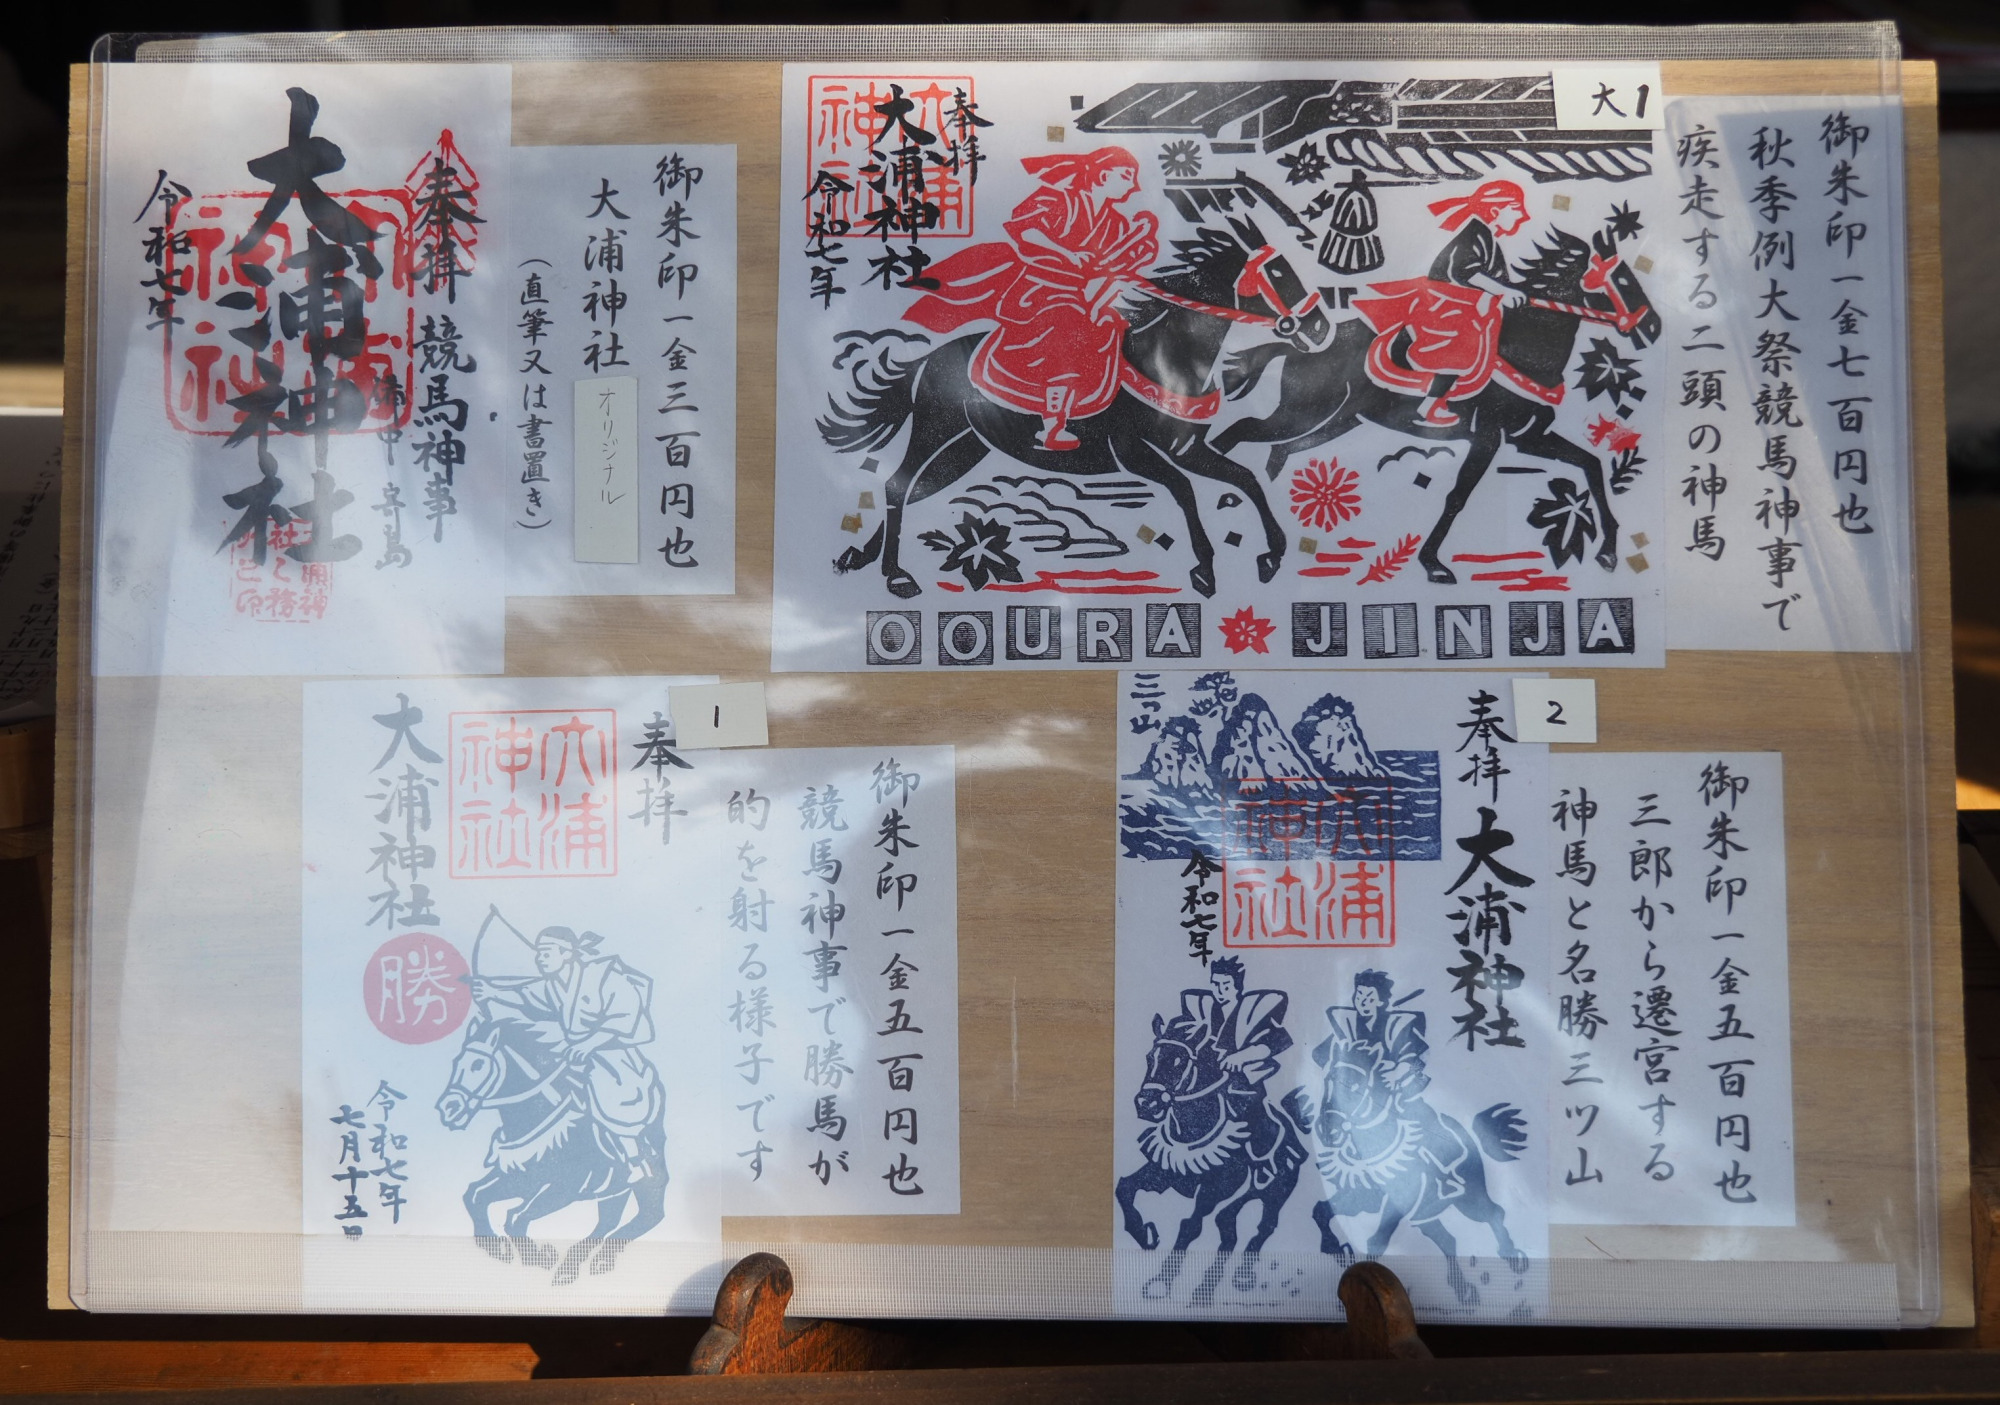 奉拝 競馬神事
備中 寄島
大浦神社
令和七年
御朱印一金三百円也
大浦神社
オリジナル
(直筆又は書置き)
大1
奉拝
大浦神社
令和七年
大浦神社
OOURA JINJA
御朱印一金七百円也
秋季例大祭競馬神事で
疾走する二頭の神馬
1
奉拝
大浦神社
大浦神社
勝
令和七年
七月十五日
御朱印一金五百円也
競馬神事で勝馬が
的を射る様子です
2
三ツ山
奉拝
大浦神社
大浦神社
令和七年
御朱印一金五百円也
三郎から遷宮する
神馬と名勝三ツ山